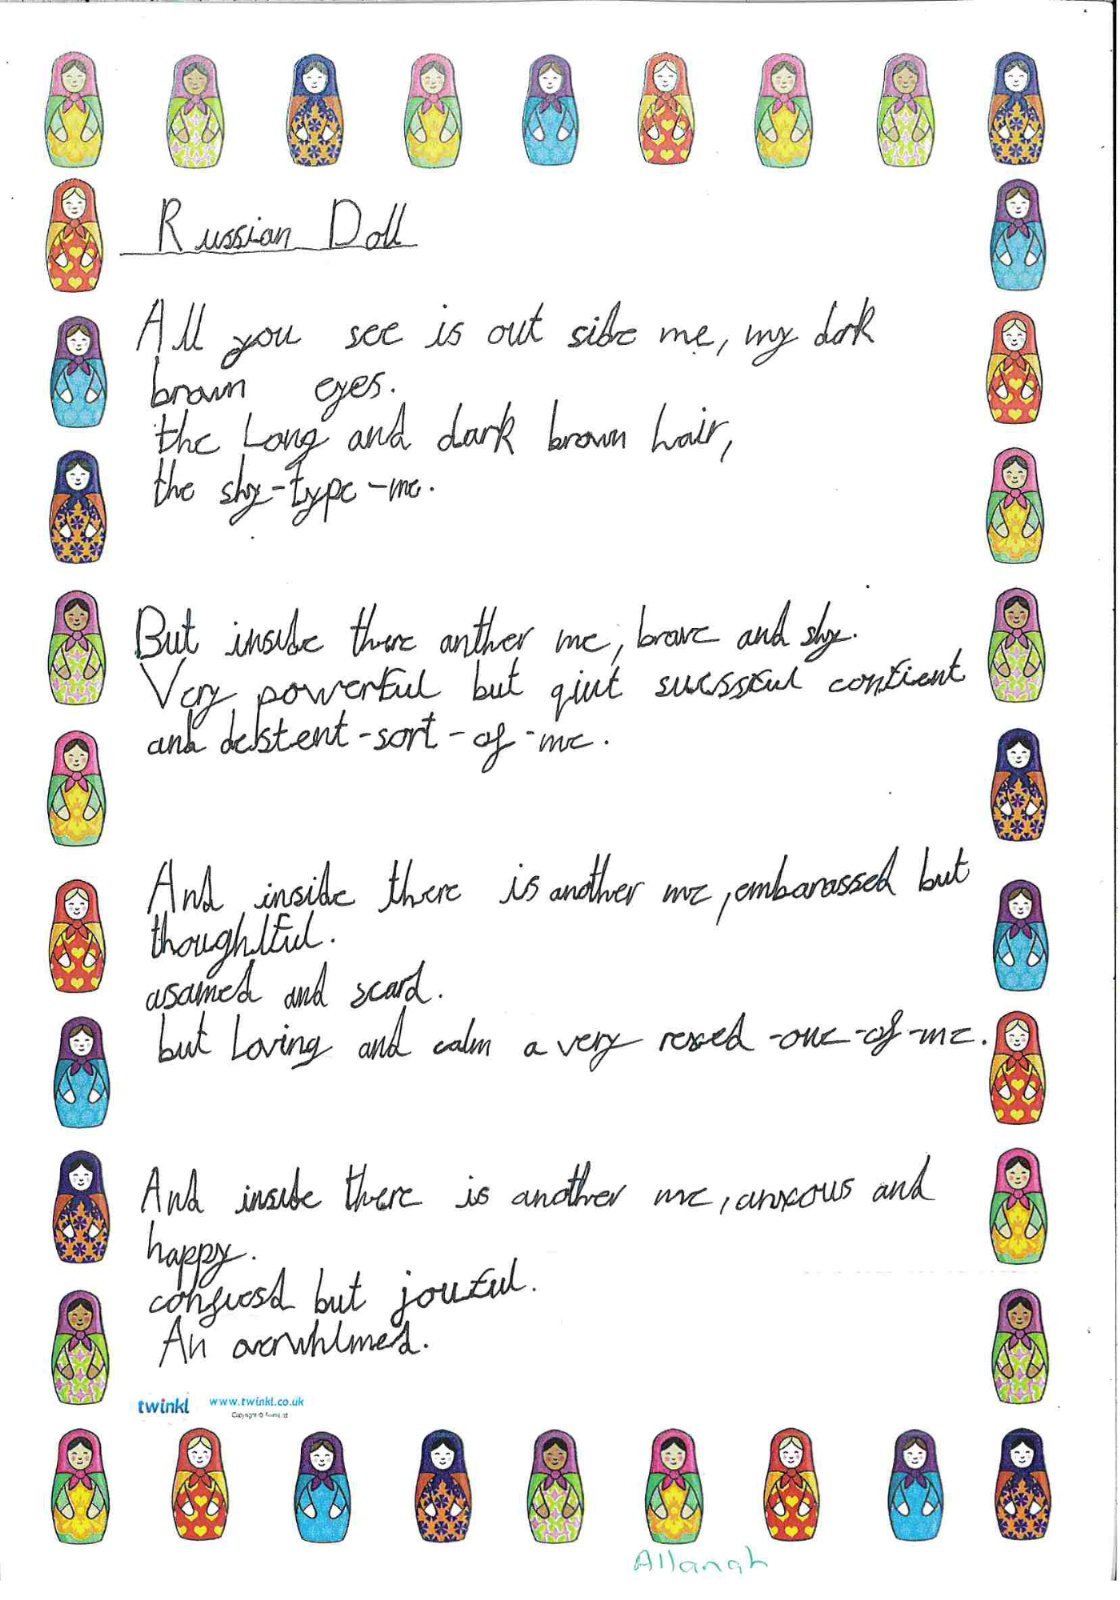 Russian Doll
All you see is out side me, my dark
brown eyes.
the Long and dark brown hair,
the shy-type-me.
But inside there anther me, brave and shy.
Very powerful but qiut sucssful confient
and destent-sort-of-me.
And inside there is another me, embarassed but
thoughtful.
asamed and scard.
but Loving and calm a very rexed-one-of-me.
And inside there is another me, anxcous and
happy.
confuesd but jouful.
An overwhlmed.
twinkl www.twinkl.co.uk
Allanah